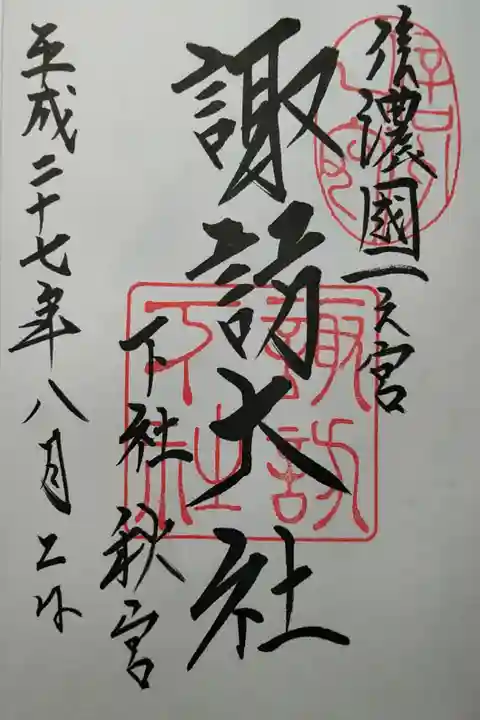 信濃國一之宮
諏訪大社
下社 秋宮
諏訪
下社
平成二十七年八月